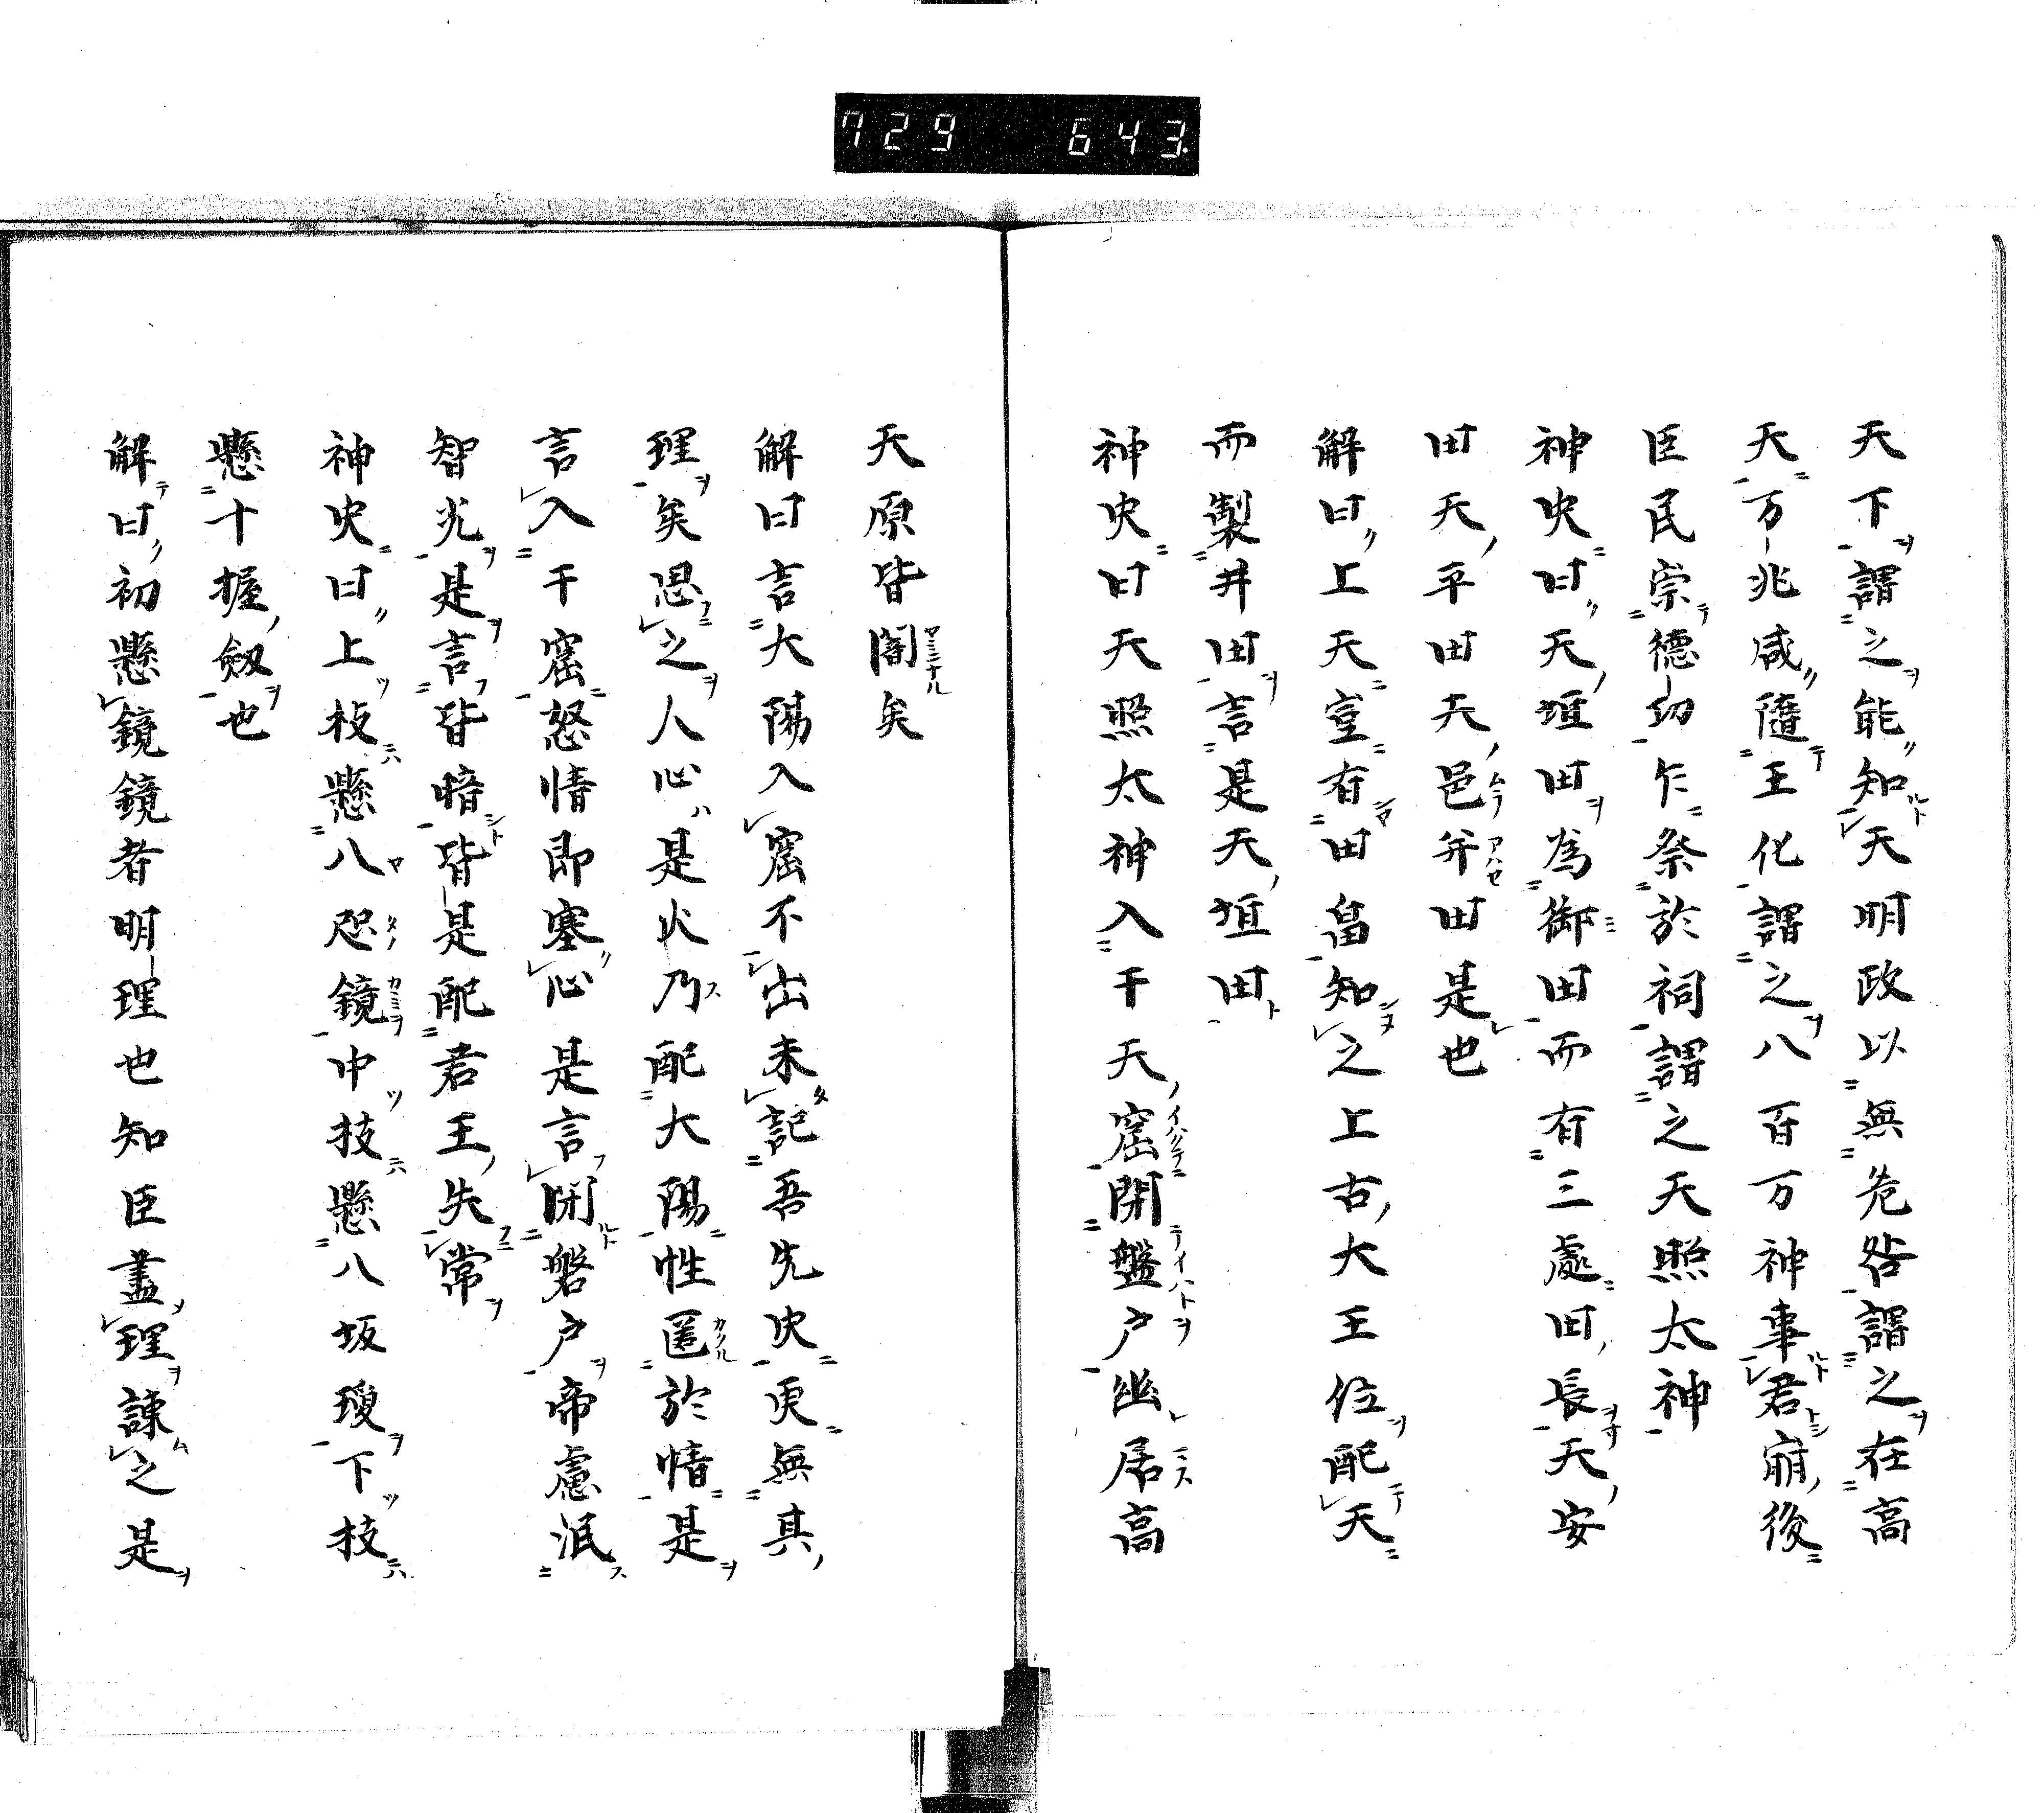 729 643
天下謂之能知天明政以無危咎謂之在高
天万兆咸隨王化謂之八百万神事君崩後
臣民崇德功乍祭於祠謂之天照太神
神史曰天垣田為御田而有三處田長天安
田天平田天邑并田是也
解曰上天室有田畠知之上古大王位配天
而製井田言是天垣田
神史曰天照太神入于天窟閇盤户幽居高
天原皆闇矣
解曰言大陽入窟不出未記吾先史更無其
理矣思之人心是火乃配大陽性匿於情是
言入于窟怒情即塞心是言閇磐户帝慮泯
智光是言皆暗皆是配君王失常
神史曰上枝懸八咫鏡中技懸八坂瓊下技
懸十握劔也
解曰初懸鏡鏡者明理也知臣盡理諫之是